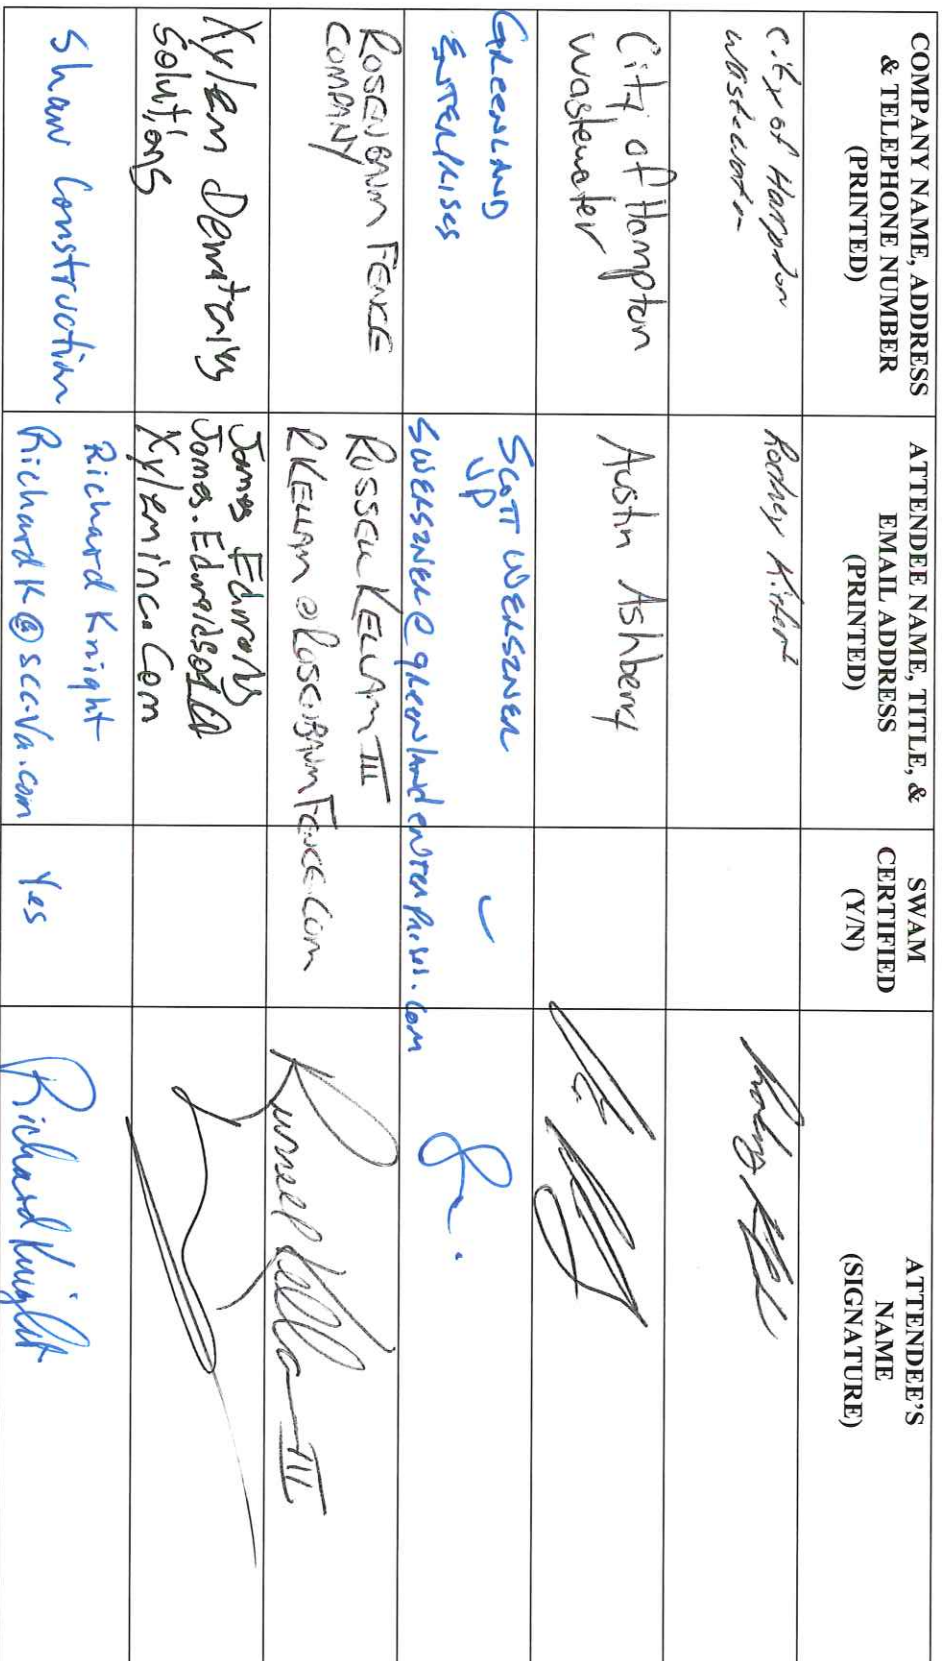 COMPANY NAME, ADDRESS
& TELEPHONE NUMBER
(PRINTED)
ATTENDEE NAME, TITLE, &
EMAIL ADDRESS
(PRINTED)
SWAM
CERTIFIED
(Y/N)
ATTENDEE'S
NAME
(SIGNATURE)
City of Hampton
Wastewater
Rodney
City of Hampton
Wastewater
Austin Ashbery
GREENLAND
ENTERPRISES
SCOTT WERSZNER
VP
SWERSZNER@greenlandenterprises.com
✓
ROSENBAUM FENCE
COMPANY
RUSSELL KELLAM III
RKELLAM@ROSENBAUMFENCE.COM
Russell Kellam III
Xylem Dewatering
Solutions
James Edwards
James.Edwards@
Xyleminc.com
Shaw Construction
Richard Knight
RichardK@scc-va.com
Yes
Richard Knight